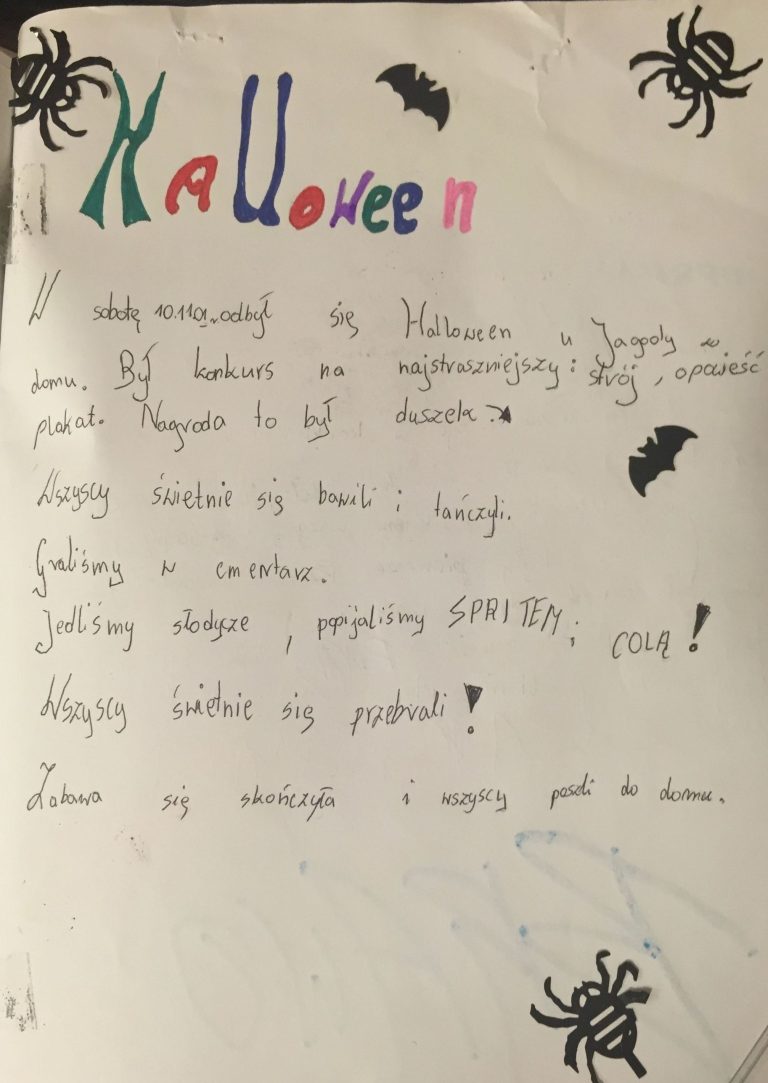 Halloween
W sobotę 10.11.01r. odbył się Halloween u Jagody w
domu. Był konkurs na najstraszniejszy: strój, opowieść
plakat. Nagroda to był duszek.
Wszyscy świetnie się bawili i tańczyli.
Graliśmy w cmentarz.
Jedliśmy słodycze, popijaliśmy SPRITEM; COLĄ!
Wszyscy świetnie się przebrali!
Zabawa się skończyła i wszyscy poszli do domu.